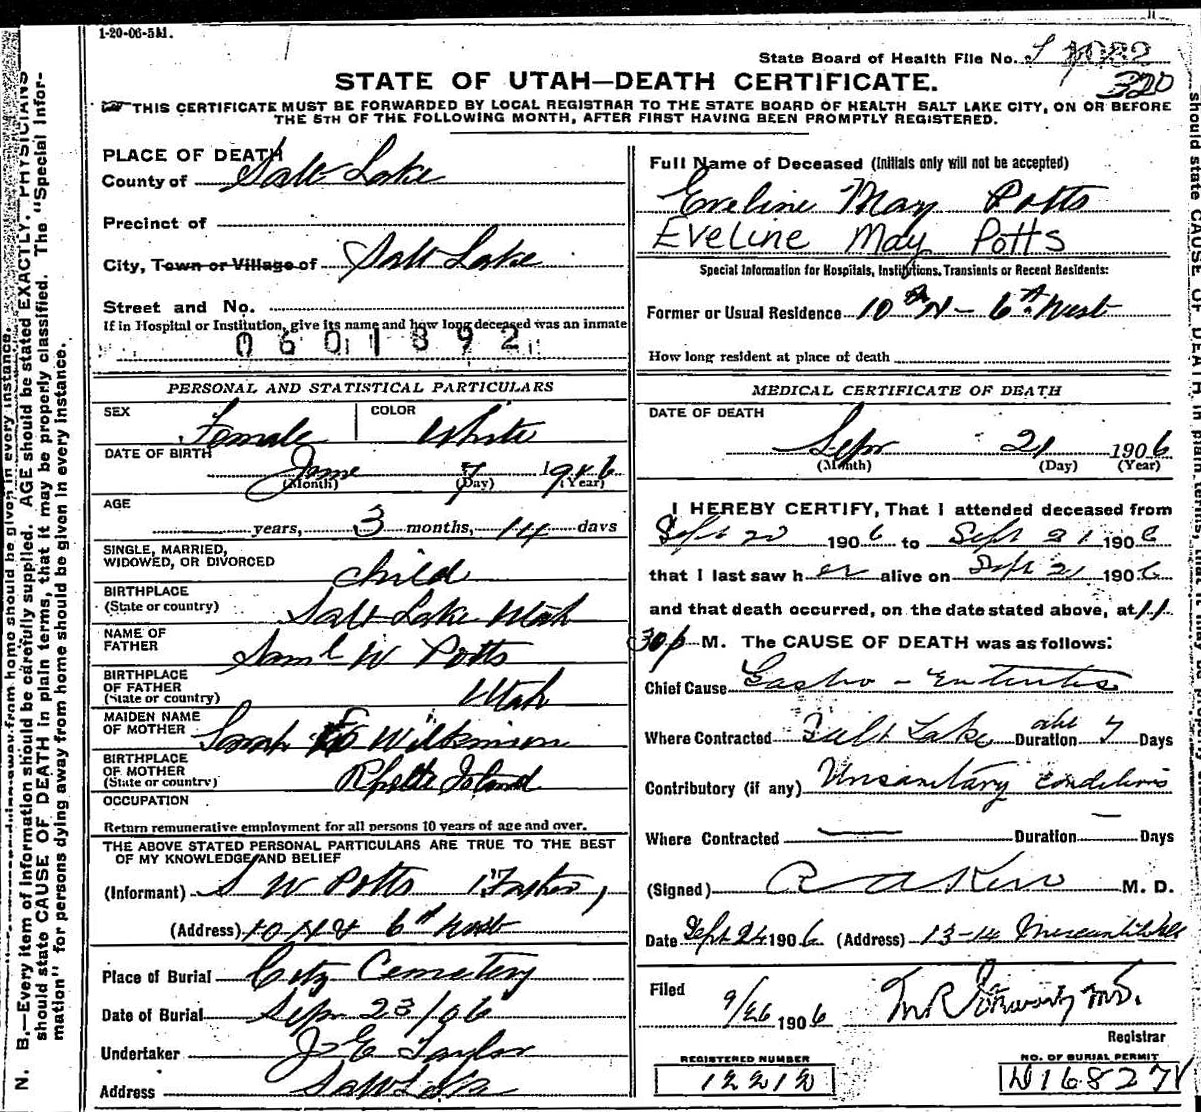 1-20-06-5M.
State Board of Health File No.
320
STATE OF UTAH—DEATH CERTIFICATE.
THIS CERTIFICATE MUST BE FORWARDED BY LOCAL REGISTRAR TO THE STATE BOARD OF HEALTH SALT LAKE CITY, ON OR BEFORE
THE 5TH OF THE FOLLOWING MONTH, AFTER FIRST HAVING BEEN PROMPTLY REGISTERED.
PLACE OF DEATH
County of Salt Lake
Precinct of
City, Town or Village of Salt Lake
Street and No.
If in Hospital or Institution, give its name and how long deceased was an inmate
0601892
PERSONAL AND STATISTICAL PARTICULARS
SEX Female COLOR White
DATE OF BIRTH June 7 1906
(Month) (Day) (Year)
AGE
years, 3 months, 14 days
SINGLE, MARRIED,
WIDOWED, OR DIVORCED child
BIRTHPLACE
(State or country) Salt Lake Utah
NAME OF
FATHER Saml W Potts
BIRTHPLACE
OF FATHER
(State or country) Utah
MAIDEN NAME
OF MOTHER Sarah E Wilkinson
BIRTHPLACE
OF MOTHER
(State or country) Island
OCCUPATION
Return remunerative employment for all persons 10 years of age and over.
THE ABOVE STATED PERSONAL PARTICULARS ARE TRUE TO THE BEST
OF MY KNOWLEDGE AND BELIEF
(Informant) S W Potts Father
(Address) 10 N & 6th West
Place of Burial City Cemetery
Date of Burial Sepr 23/06
Undertaker J E Taylor
Address Salt Lake
Full Name of Deceased (Initials only will not be accepted)
Eveline May Potts
EVELINE MAY POTTS
Special Information for Hospitals, Institutions, Transients or Recent Residents:
Former or Usual Residence 10th N - 6th West
How long resident at place of death
MEDICAL CERTIFICATE OF DEATH
DATE OF DEATH
Sepr 21 1906
(Month) (Day) (Year)
I HEREBY CERTIFY, That I attended deceased from
Sept 20 1906 to Sept 21 1906
that I last saw her alive on Sept 21 1906
and that death occurred, on the date stated above, at 11
30 p M. The CAUSE OF DEATH was as follows:
Chief Cause Gastro - Enteritis
Where Contracted Salt Lake Duration abt 7 Days
Contributory (if any) Unsanitary conditions
Where Contracted — Duration — Days
(Signed) R A Kerr M. D.
Date Sept 24 1906 (Address) 13-14 Mercantile
Filed 9/26 1906 M.D.
Registrar
REGISTERED NUMBER
12212
NO. OF BURIAL PERMIT
N16827
N. B.—Every item of information should be carefully supplied. AGE should be stated EXACTLY. PHYSICIANS
should state CAUSE OF DEATH in plain terms, that it may be properly classified. The "Special Infor-
mation" for persons dying away from home should be given in every instance.
should state CAUSE OF DEATH in plain terms, that it may